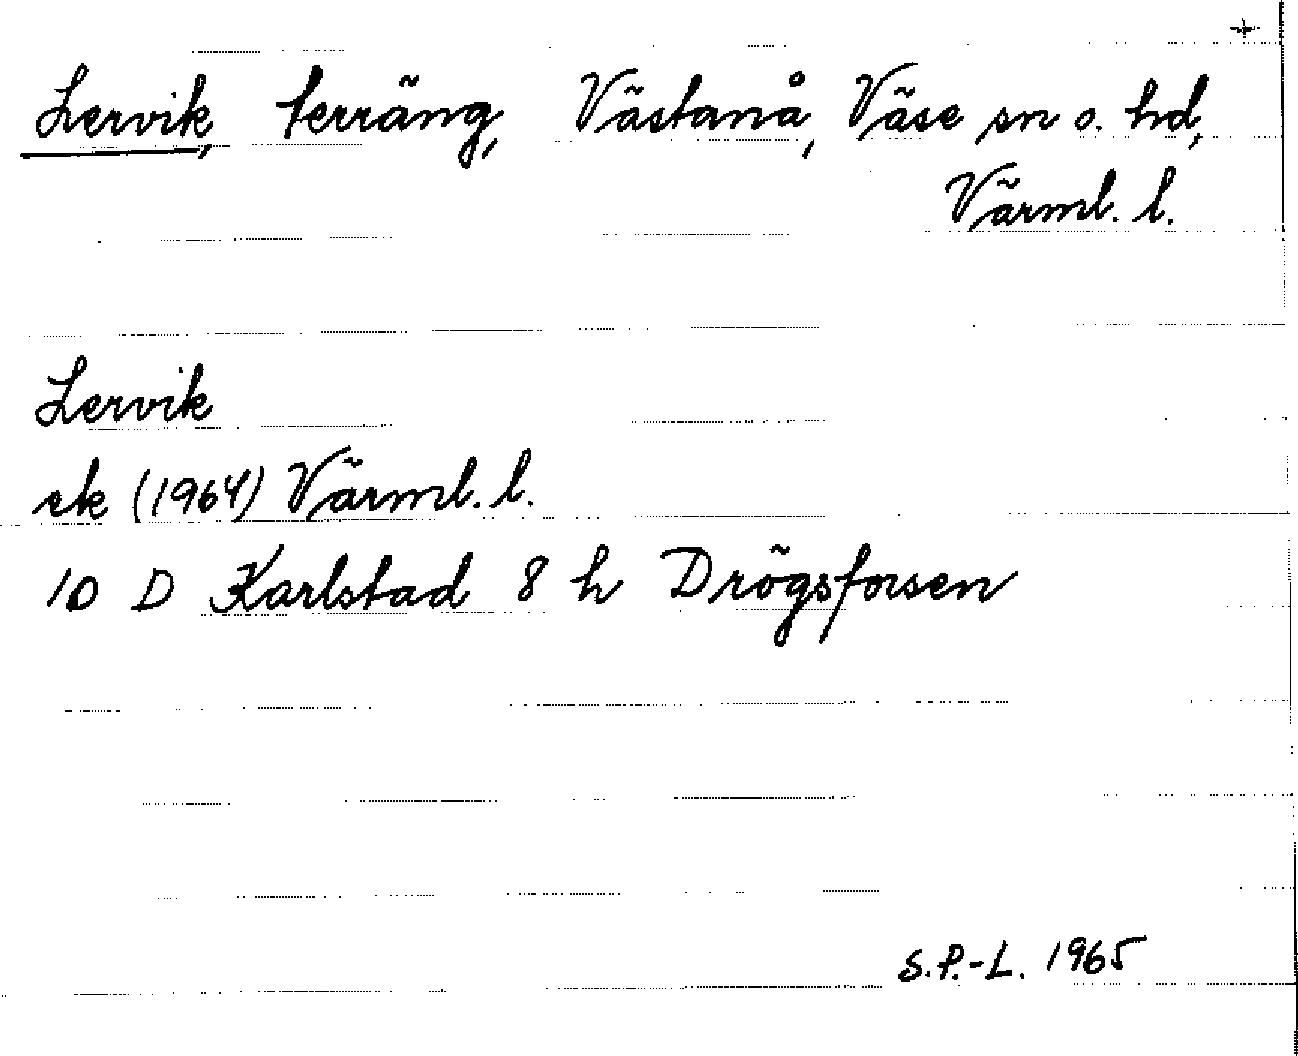 +
Lervik, terräng, Västanå, Väse sn o. hd,
Värml. l.
Lervik
ek (1964) Värml. l.
10 D Karlstad 8 h Drögsforsen
S.P.-L. 1965